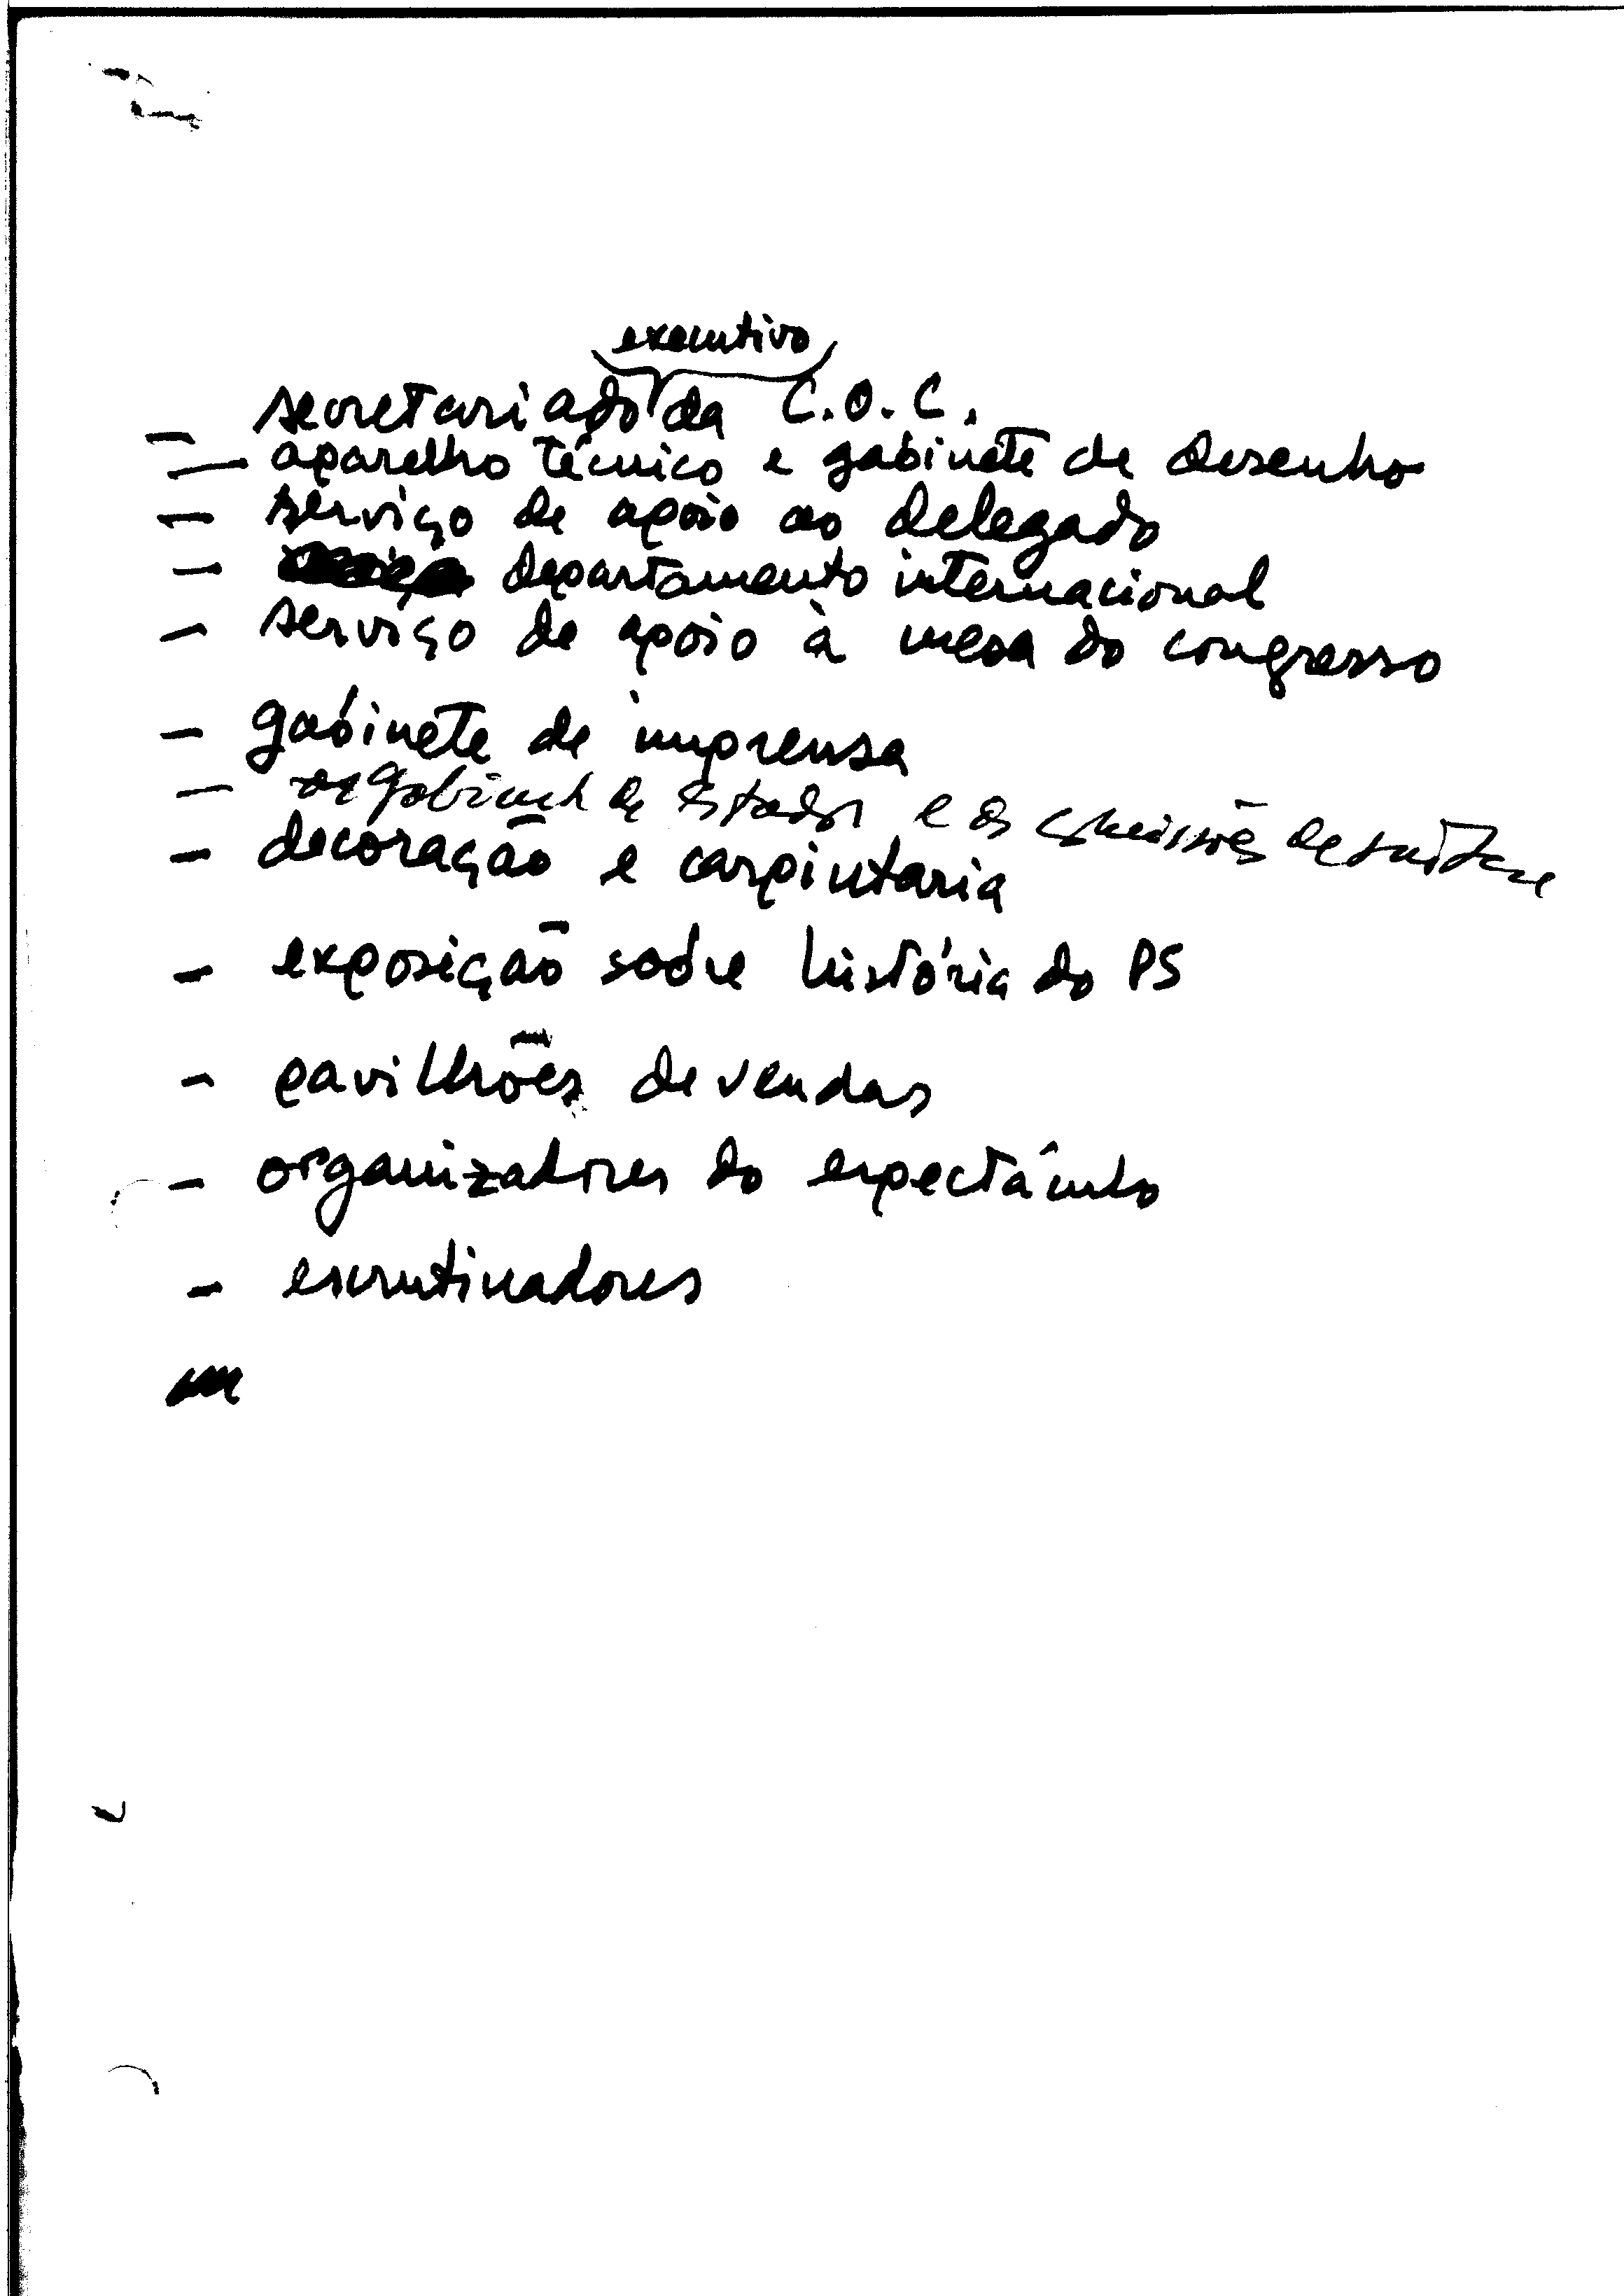 executivo
– secretariado da C.O.C.
– aparelho técnico e gabinete de desenho
– serviço de apoio ao delegado
– departamento internacional
– serviço de apoio à mesa do congresso
– gabinete de imprensa
– gabinete de Estados e as comissões de
– decoração e carpintaria
– exposição sobre história do PS
– pavilhões de vendas
– organizadores do espectáculo
– escrutinadores